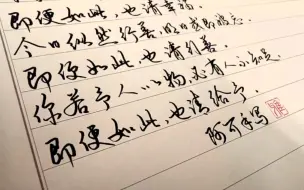 即便如此,也请幸福.
今日你然行善,明日或即被忘.
即便如此,也请行善.
你若予人以物,亦有人不知足.
即便如此,也请给予.
阿可手写